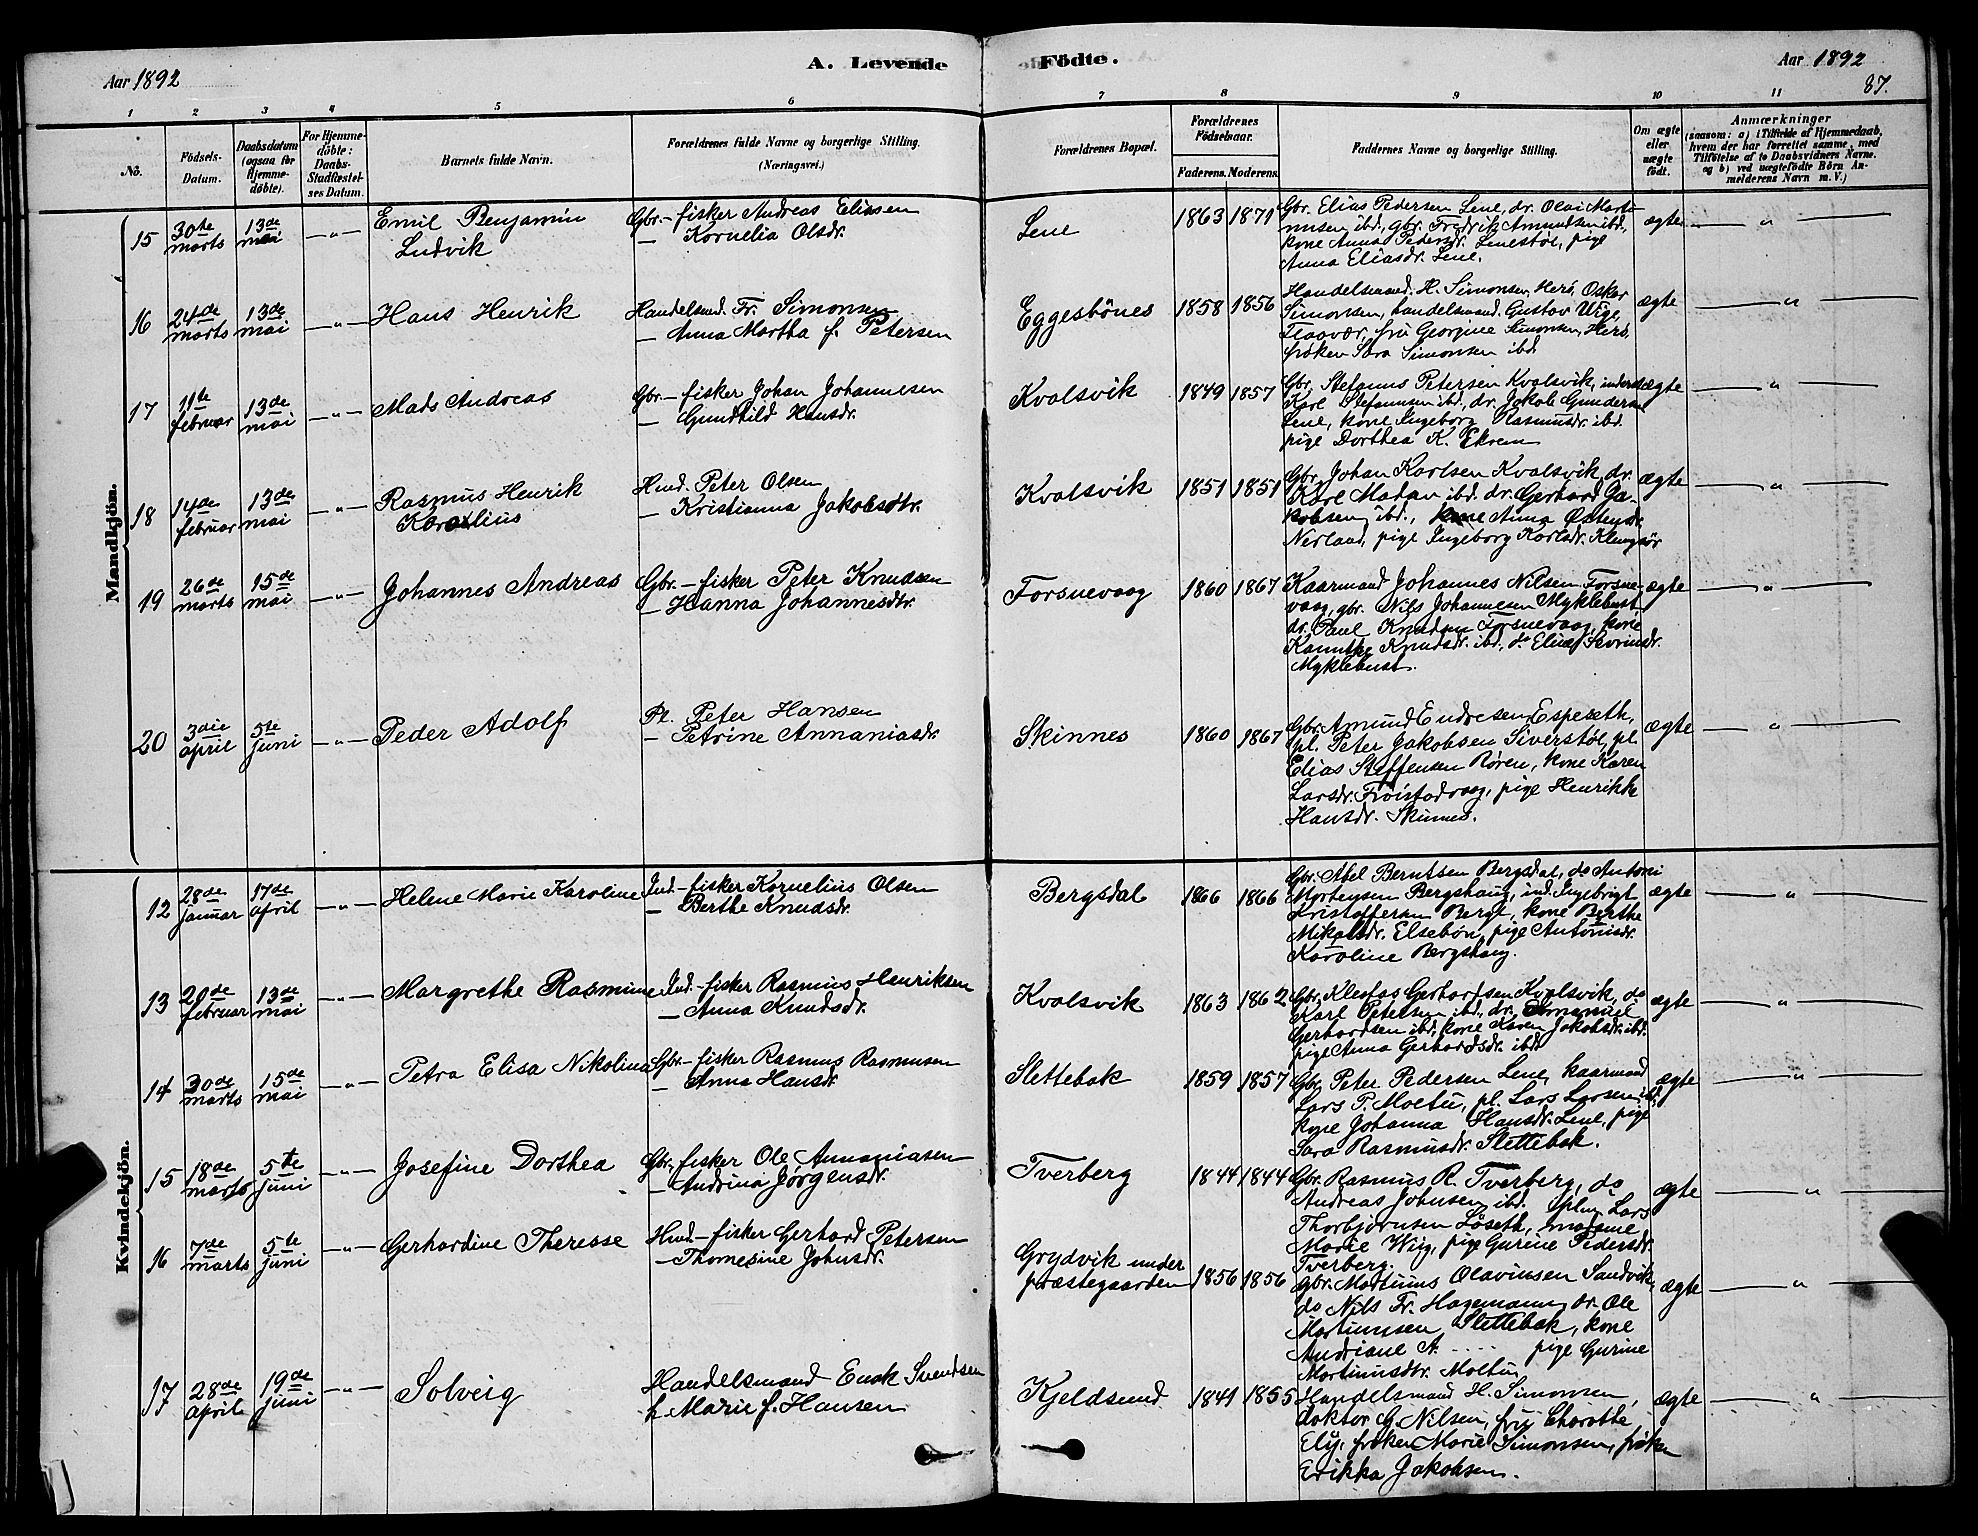 Aar 1892
A. Levende Födte.
Aar 1892
87.
1 2 3 4 5 6 7 8 9 10 11
No.
Födsels-Datum.
Daabsdatum (ogsaa for Hjemme-döbte).
For Hjemme-döbte: Daabs-Stadfæstel-ses Datum.
Barnets fulde Navn.
Forældrenes fulde Navne og borgerlige Stilling.
(Næringsvei.)
Forældrenes Bopæl.
Forældrenes Födselsaar.
Faderens. Moderens.
Faddernes Navne og borgerlige Stilling.
Om ægte eller uægte födt.
Anmærkninger
(saasom: a) i Tilfælde af Hjemmedaab,
hvem der har forrettet samme, med
Tilföielse af to Daabsvidners Navne.
og b) ved uægtefödte Börn An-
melderens Navn m. V.)
Mandkjön.
15 30te marts 13de mai —"— Emil Benjamin
Ludvik
Gbr.- fisker Andreas Eliasen
— Kornelia Olsdr.
Lene 1863 1871
Gbr. Elias Pedersen Lene, dr. Olai Marti-
nusen ibd, gbr. Fredrik Amundsen ibd,
kone Anna Pedersdr. Lenestøl, pige
Anna Eliasdr. Lene.
ægte — " —
16 24de marts 13de mai —"— Hans Henrik
Handelsmd. Fr. Simonsen
— Anna Martha f. Petersen
Eggesbönes 1858 1856
Handelsmand H. Simonsen, Herö, Oskar
Simonsen, handelsmand Gustav Wige,
Flaavær, fru Georgine Simonsen, Herö,
frøken Sara Simonsen ibd.
ægte — " —
17 11te februar 13de mai —"— Mads Andreas
Gbr.- fisker Johan Johannesen
— Gundhild Hansdr.
Kvalsvik 1849 1857
Gbr. Stefanus Petersen Kvalsvik, inderst
Karl Stefanusen ibd., dr. Jakob Gundersen
Lene, kone Ingeborg Rasmusdr. ibd.
pige Dorthea K. Ekrem
ægte — " —
18 14de februar 13de mai —"— Rasmus Henrik
Karolius
Hmd. Peter Olsen
— Kristianna Jakobsdtr.
Kvalsvik 1851 1851
Gbr. Johan Karlsen Kvalsvik, dr.
Karl Madsen ibd. dr. Gerhard Ja-
kobsen ibd., kone Anna Østensdr.
Nerland, pige Ingeborg Karlsdr. Klungsør
ægte — " —
19 26de marts 15de mai —"— Johannes Andreas
Gbr.- fisker Peter Knudsen
— Hanna Johannesdtr.
Forsnevaag 1860 1867
Kaarmand Johannes Nilsen Forsne-
vaag, gbr. Nils Johannesen Myklebust
dr. Paul Knudsen Forsnevaag, kone
Knudsdr. ibd., do Elias Sevrinsdr.
Myklebust.
ægte — " —
20 3die april 5te juni —"— Peder Adolf
Pl. Peter Hansen
— Petrine Annaniasdr.
Skinnes 1860 1867
Gbr. Amund Endresen Espeseth,
pl. Peter Jakobsen Siverstøl, pl.
Elias Steffensen Røren, kone Karen
Larsdr. Frøistadvaag, pige Henrikke
Hansdr. Skinnes.
ægte — " —
Kvindekjön.
12 28de januar 17de april —"— Helene Marie Karoline
Ind.- fisker Kornelius Olsen
— Berthe Knudsdr.
Bergsdal 1866 1866
Gbr. Abel Berntsen Bergsdal, do Antoni
Mortensen Bergshaug, ind. Ingebrigt
Kristoffersen Berge, kone Berthe
Mikalsdr. Elsebøn, pige Antonisdr.
Karoline Bergshaug.
ægte — " —
13 20de februar 13de mai —"— Margrethe Rasmine
Ind.- fisker Rasmus Henriksen
— Anna Knudsdr.
Kvalsvik 1863 1862
Gbr. Klefas Gerhardsen Kvalsvik, do
Karl Petersen ibd., dr. Emanuel
Gerhardsen ibd, kone Karen Jakobsdr. ibd.
pige Anna Gerhardsdr. ibd
ægte — " —
14 30de marts 15de mai —"— Petra Elisa Nikolina
Gbr.- fisker Rasmus Rasmusen
— Anna Hansdr.
Slettebak 1859 1857
Gbr. Peter Pedersen Lene, kaarmand
Lars P. Moltu, pl. Lars Larsen ibd,
kone Johanna Hansdr. Lene, pige
Sara Rasmusdr. Slettebak.
ægte — " —
15 18de marts 5te juni —"— Josefine Dorthea
Gbr.- fisker Ole Annaniasen
— Andrina Jørgensdr.
Tverberg 1844 1844
Gbr. Rasmus R. Tverberg, do
Andreas Johnsen ibd. splm. Lars
Thorbjørnsen Løseth, madame
Marie Wiig, pige Gurine Pedersdr.
Tverberg.
ægte — " —
16 7de marts 5te juni —"— Gerhardine Theresse
Hmd.- fisker Gerhard Petersen
— Thomesine Johnsdr.
Grydvik under
præstegaarden 1856 1856
gbr. Martinus Olavinsen Sandvik,
do Nils Fr. Hagemann, dr. Ole
Martinusen Slettebak, kone
Andriane A. .... pige Gurine
Martinusdtr. Moltu
ægte — " —
17 28de april 19de juni —"— Solveig
Handelsmand Enok Svendsen
h. Marie f. Hansen
Kjeldsund 1841 1855
Handelsmand H. Simonsen,
doktor G. Nilsen, fru Charotte
Ely, frøken Marie Simonsen, frøken
Erikka Jakobsen.
ægte — " —